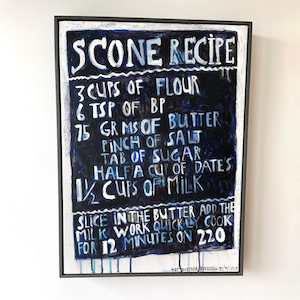 SCONE RECIPE
3 CUPS OF FLOUR
6 TSP OF BP
75 GRMS OF BUTTER
PINCH OF SALT
TAB OF SUGAR
HALF A CUP OF DATE'S
1½ CUPS OF MILK
SLICE IN THE BUTTER ADD THE
MILK WORK QUICKLY COOK
FOR 12 MINUTES ON 220